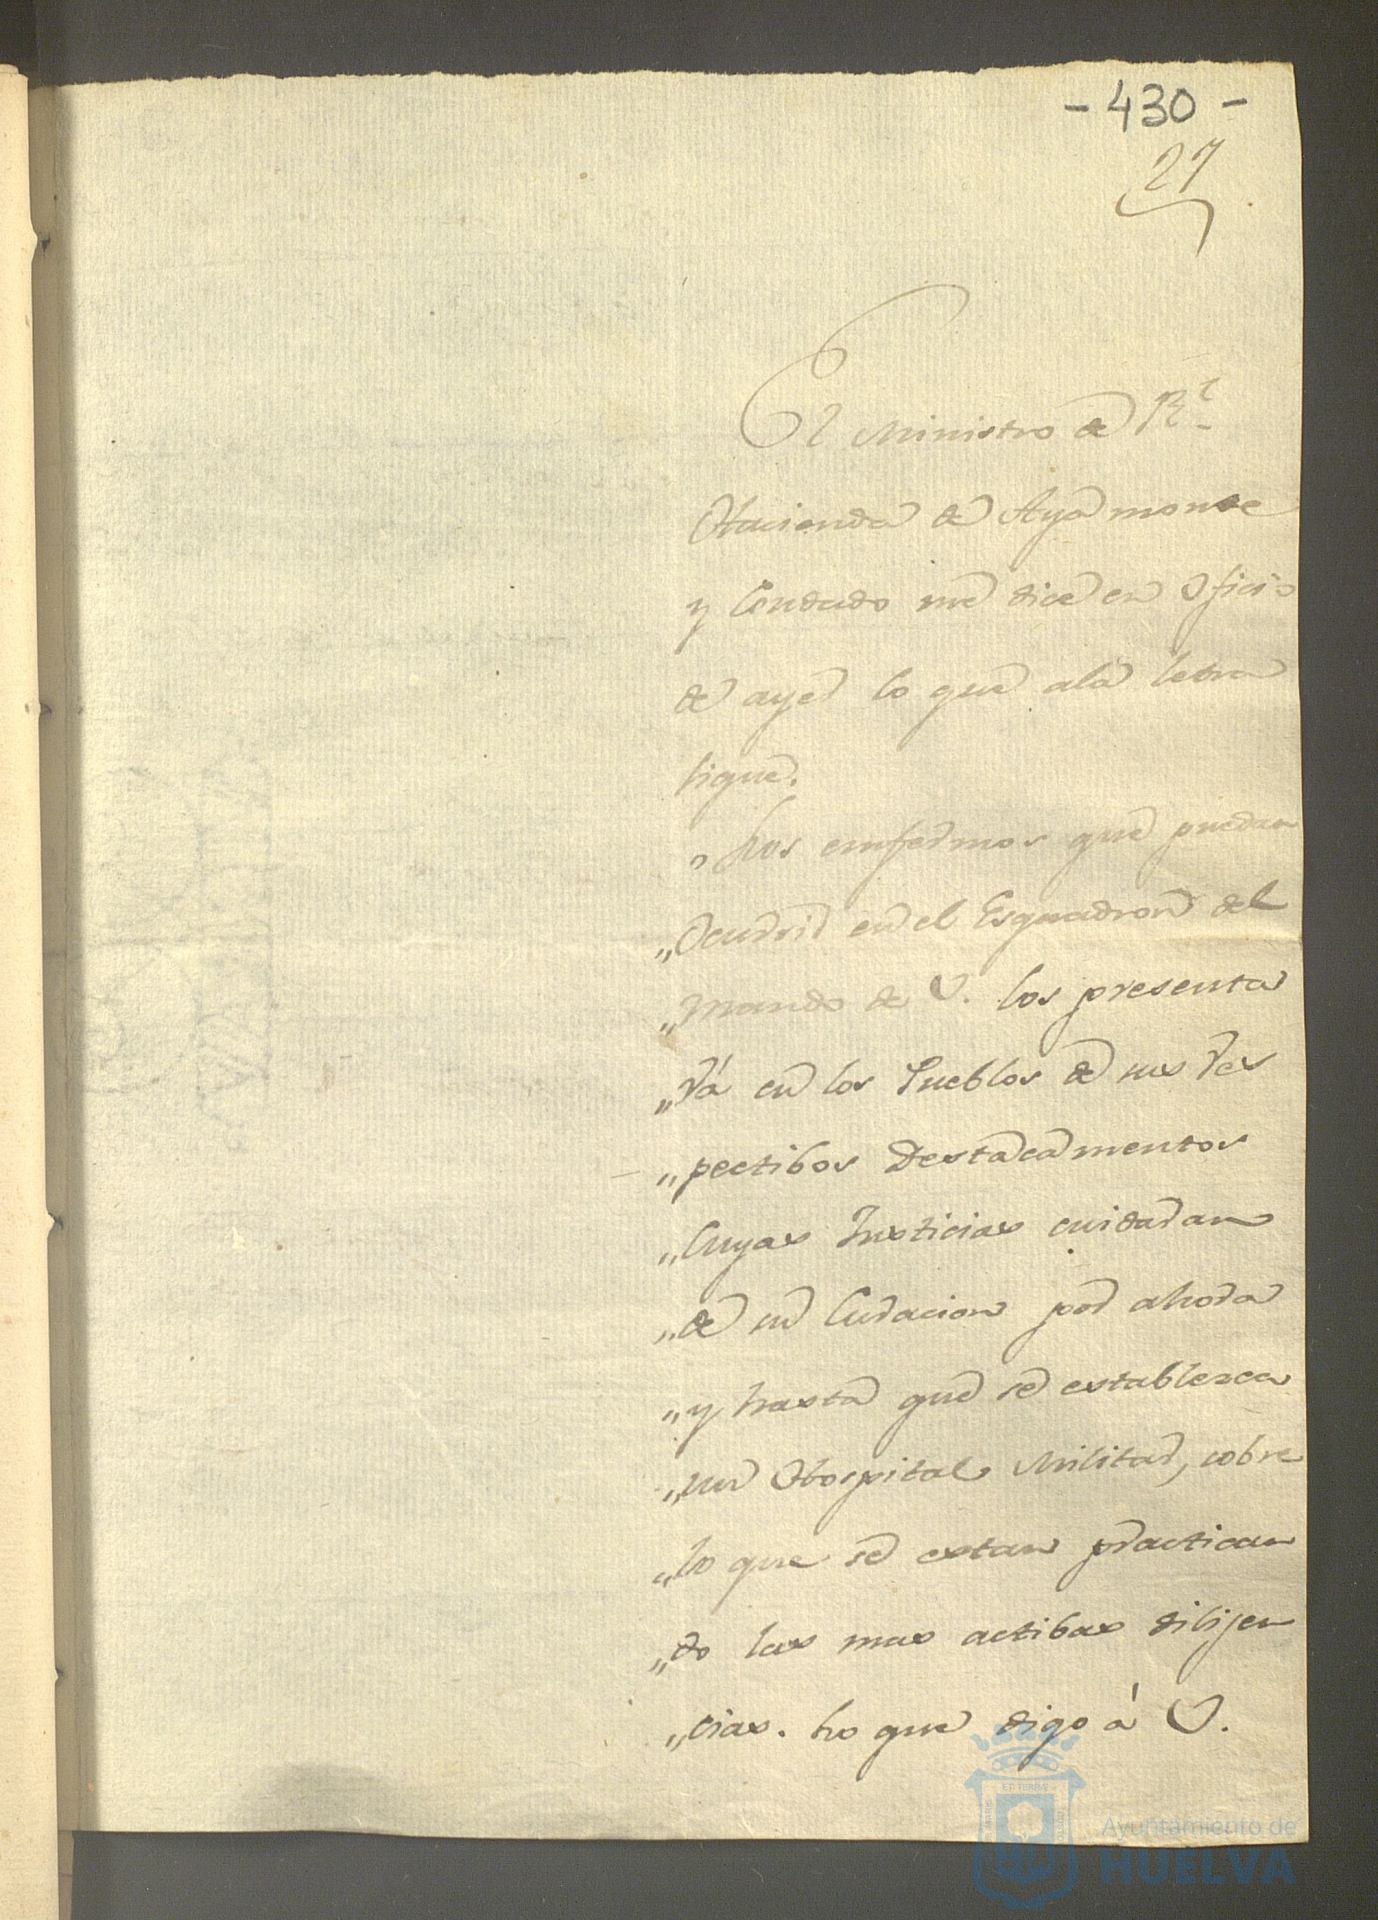 - 430 -
27
El Ministro de Rl.
Hacienda de Ayamonte
y Condado me dice en Oficio
de ayer lo que ala letra
sigue.
„ Los enfermos que puedan
„ Ocurrir en el Esquadron del
„ mando de V. los presenta
„ rá en los Pueblos de sus res
„ pectibos Destacamentos
„ Cuyas Justicias cuidaran
„ de su Curacion por ahora
„ y hasta que se establezca
„ un Hospital Militar, sobre
„ lo que se estan practican
„ do las mas actibas dilijen
„ cias. Lo que digo á V.
ET TERRÆ
Ayuntamiento de
HUELVA